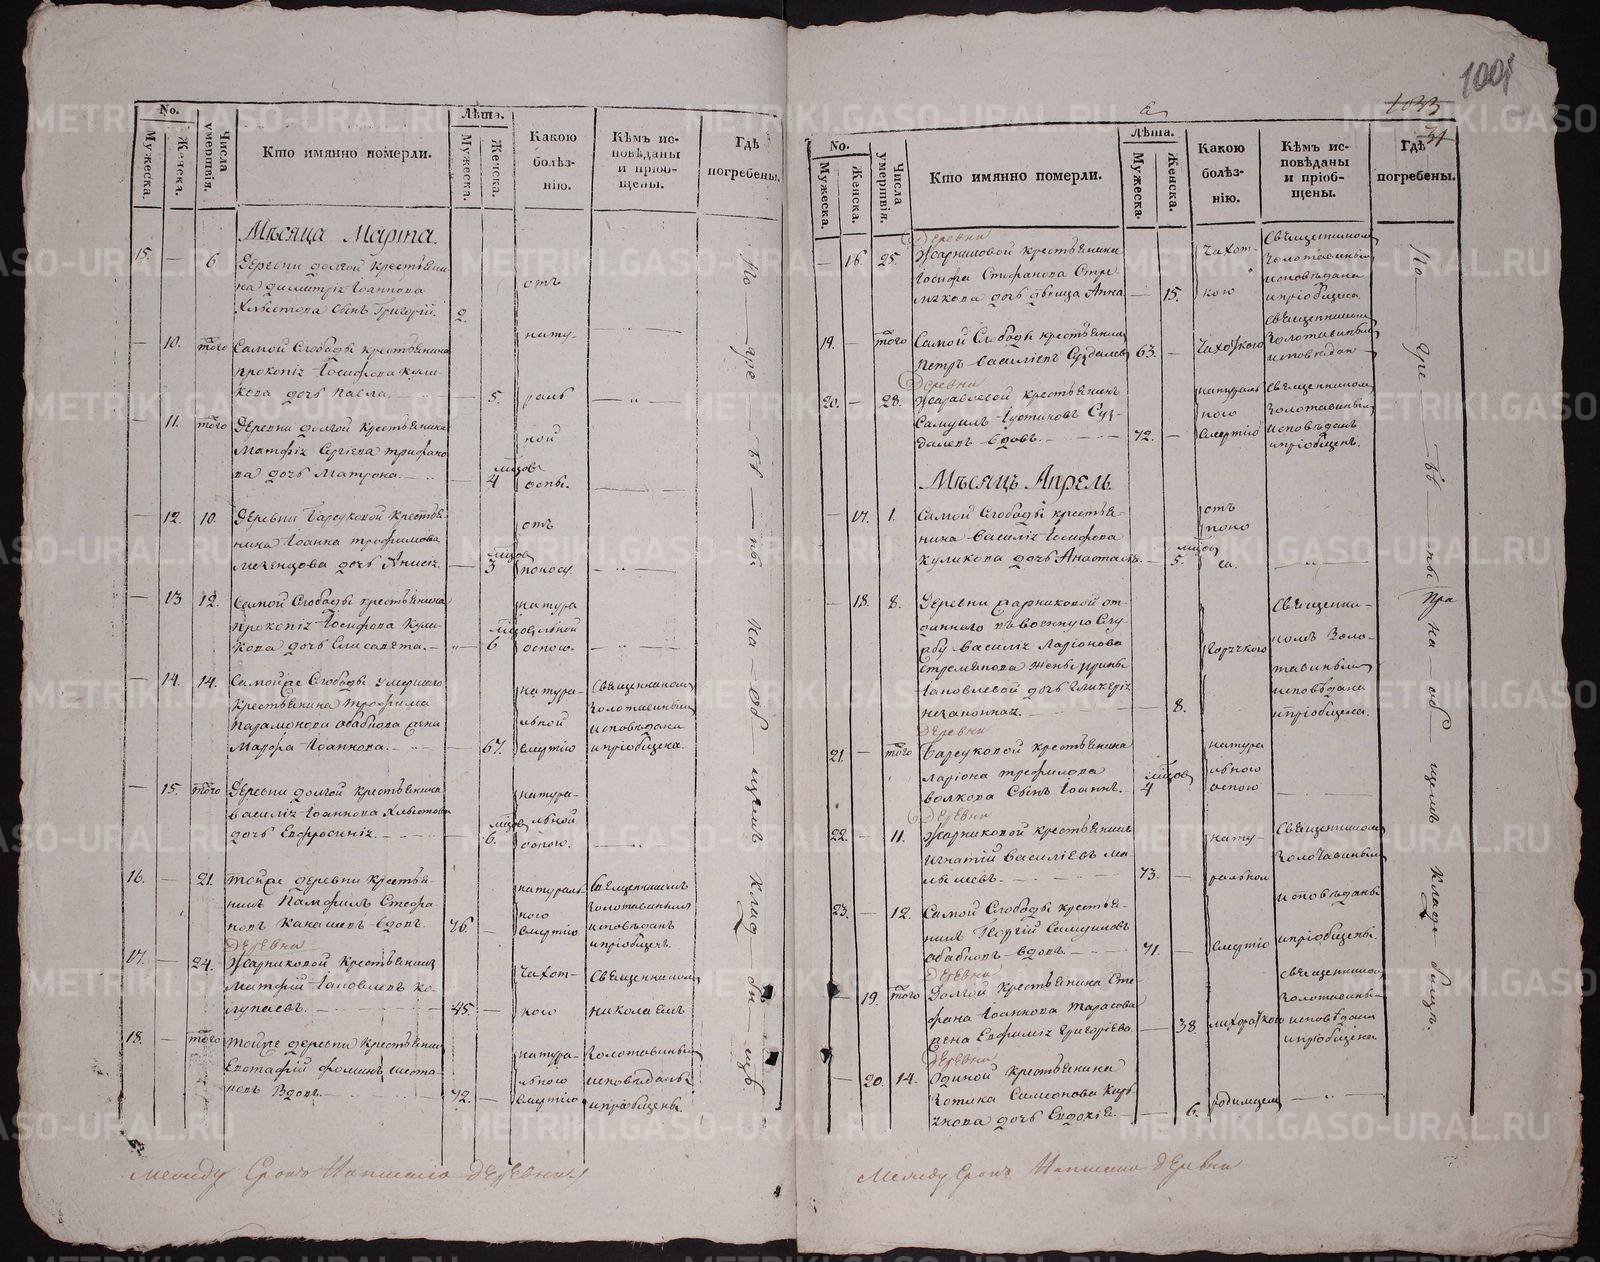 1001
1033
31
No.
Мужеска.
Женска.
Числа умертвія.
Кто имянно померли.
Лѣта.
Мужеска.
Женска.
Какою
болѣз-
нію.
Кѣмъ ис-
повѣданы
и пріоб-
щены.
Гдѣ
погребены.
Мѣсяца Марта.
15. — 6. Деревни долгой крестьяни
на димитрія Іоаннова
сынъ Григорій. 2. отъ
— 10. того Самой Слободы крестьянина
прокопія Іосифова Кули-
кова дочь Павла. — 5. нату-
раль
— 11. того Деревни долгой крестьянина
Матфія Сергіева трифано
ва дочь Матрона. — мѣсцов 4 ной
оспы.
— 12. 10. Деревни Барсуковой крестья-
нина Іоанна трофимова
дочь Анисія. — мѣсцов 3 отъ
поносу.
— 13 12. Самой Слободы крестьянина
прокопія Іосифова Кули-
кова дочь Елисавета. — мѣсцов 6 натура
льной
оспою.
— 14. 14. Самой же Слободы умершаго
крестьянина трофима
Парамонова Бабнова жена
Марфа Іоаннова. — 67. натура-
льной
смертію
Священникомъ
Золотавинымъ
исповѣдана
и пріобщена.
— 15. того Деревни долгой крестьянина
василія Іоаннова
дочь Евфросинія. — мѣсцов 6. натура-
льной
оспою.
16. — 21. той же деревни крестья-
нинъ Памфилъ Стефа-
новъ вдовъ. 76. — натураль-
ного
смертію
Священникомъ
Золотавинымъ
исповѣданъ
и пріобщенъ.
деревни
17. — 24. Жарниковой крестьянинъ
Матфій Іаковлевъ Ко-
лупаевъ. 45. — чахот-
кою
Священникомъ
Николаемъ
18. — того той же деревни крестьянинъ
Евстафій фоминъ Шеста-
ковъ Вдовъ. 72. — натура-
льного
смертію
Золотавинымъ
исповѣданы
и пріобщены.
По — при — на — об — щемъ клад би — щѣ
Между Строкъ Написано деревни
No.
Мужеска.
Женска.
Числа умертвія.
Кто имянно померли.
Лѣта.
Мужеска.
Женска.
Какою
болѣз-
нію.
Кѣмъ ис-
повѣданы
и пріоб-
щены.
Гдѣ
погребены.
Деревни
— 16. 25. Жарниковой крестьянина
Іосифа Стефанова Стре
лѣкова дочь дѣвица Анна — 15. чахот-
кою
Священникомъ
Золотавинымъ
исповѣдана
и пріобщена
19. — того Самой Слободы крестьянинъ
Петръ Василіевъ Суздалевъ 63. — чахоткою
Священникомъ
Золотавинымъ
исповѣданъ
Деревни
20. — 28. Журавлевой крестьянинъ
Самуилъ Іустиновъ Суз-
далевъ вдовъ. 72. — натураль
ного
смертію
Священникомъ
Золотавинымъ
исповѣданъ
и пріобщенъ.
Мѣсяцъ Апрель.
— 17. 1. Самой Слободы крестья-
нина Василія Іосифова
Куликова дочь Анастасія. — мѣсцов 5. отъ
поно
са.
— 18. 8. Деревни Жарниковой от-
даннаго въ военную Слу
жбу Василія Ларіонова
жены Ирины
Іаковлевой дочь Гликерія
незаконная. — 8. горячкою
Священни-
комъ Золо-
тавинымъ
исповѣдана
и пріобщена.
деревни
21. — того Барсуковой крестьянина
Ларіона трофимова
волкова Сынъ Іоаннъ. мѣсцов 4 натура
льною
оспою
деревни
22. — 11. Жарниковой крестьянинъ
Игнатій Василіевъ Ма-
лышевъ. 73. — нату-
ральной
Священникомъ
Золотавинымъ
исповѣданы
23. — 12. Самой Слободы крестья-
нинъ Георгій Самуиловъ
Бабновъ вдовъ. 71. — смертію
и пріобщены.
деревни
— 19. того Долгой крестьянина Сте
фана Іоаннова Тарасова
жена Евфимія Григоріева — 38. лихорадкою
священникомъ
Золотавинымъ
исповѣдана
и пріобщена
деревни
— 20. 14. крестьянина
Симеонова
дочь Евдокія. — 6. родимцемъ
на об — щемъ клад бищѣ.
Между Строкъ Написано деревни
METRIKI.GASO-URAL.RU